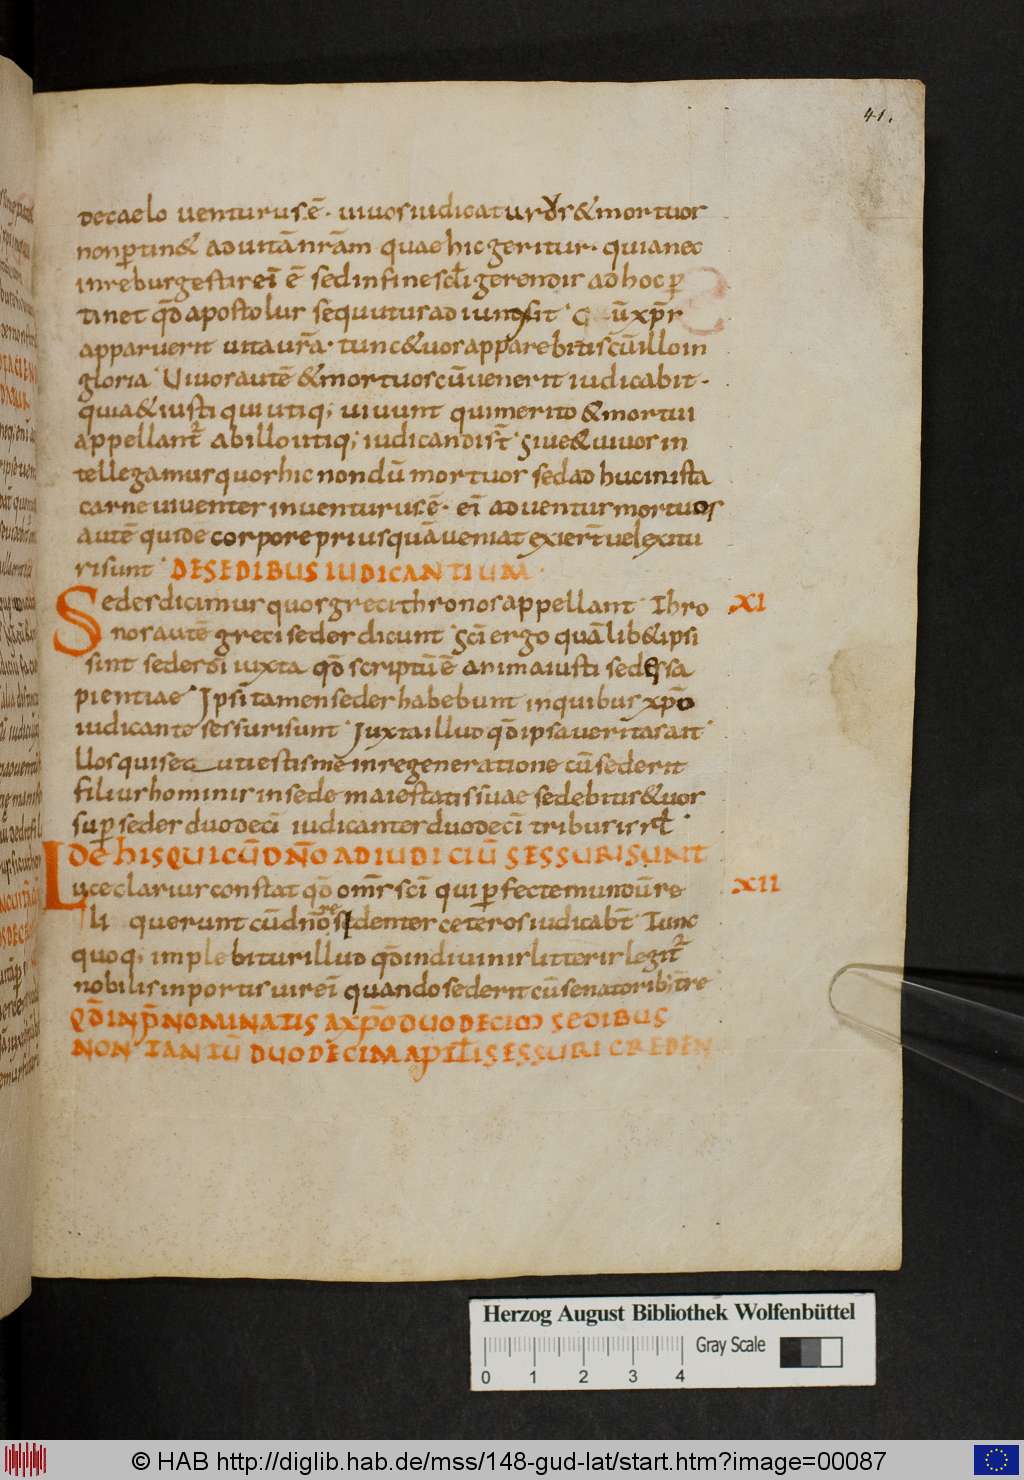 41.
decaelo uenturus ē· uiuos iudicaturus & mortuos
non ꝑtin& ad uitā nr̄am quae hic geritur· quia nec
in rebus gestis ei' ē sed in fine scl̄i gerendis ad hoc ꝑ
tinet qd̄ apostolus sequutus ad iungit · C ū xp̄s
apparuerit uita ur̄a· tunc & uos apparebitis cū illo in
gloria · Viuos autē & mortuos cū uenerit iudicabit·
quia & iusti qui utiq; uiuunt qui merito & mortui
appellant̄ ab illo utiq; iudicandi st̄ · siue & uiuos in
tellegamus quos hic nondū mortuos sed adhuc in ista
carne uiuentes inuenturus ē· ei' aduentus mortuos
autē qui de corpore prius quā ueniat exier̄t uel exitu
ri sunt · DE SEDIBUS IUDICANTIUM·
Sedes dicimus quos greci thronos appellant · Thro XI
nos autē greci sedes dicunt · Sc̄i ergo quālib& ipsi
sint sedes dī iuxta qd̄ scriptū ē anima iusti sedes sa
pientiae · Ipsi tamen sedes habebunt in quibus xp̄o
iudicante sessuri sunt · Iuxta illud qd̄ ipsa ueritas ait ·
llos qui secuti estis me in regeneratione cū sederit
filius hominis in sede maiestatis suae sedebitis & uos
suꝑ sedes duodeci' iudicantes duodeci' tribus isrl̄ ·
DE HIS QUI CŪ DN̄O AD IUDICIŪ SESSURI SUNT
Luce clarius constat qd̄ om̄s sc̄i qui ꝑfecte mundū re XII
li querunt cū dn̄o re sidentes ceteros iudicabt̄ · Tunc
quoq; implebitur illud qd̄ in diuinis litteris legit̄
nobilis in portis uir ei' quando sederit cū senatorib; t̄re
QD̄ IN P̄NOMINATIS A XP̄O DUODECIM SEDIBUS
NON TANTŪ DUODECIM AP̄TL̄I SESSURI CREDEN
Herzog August Bibliothek Wolfenbüttel
Gray Scale
0 1 2 3 4
© HAB http://diglib.hab.de/mss/148-gud-lat/start.htm?image=00087